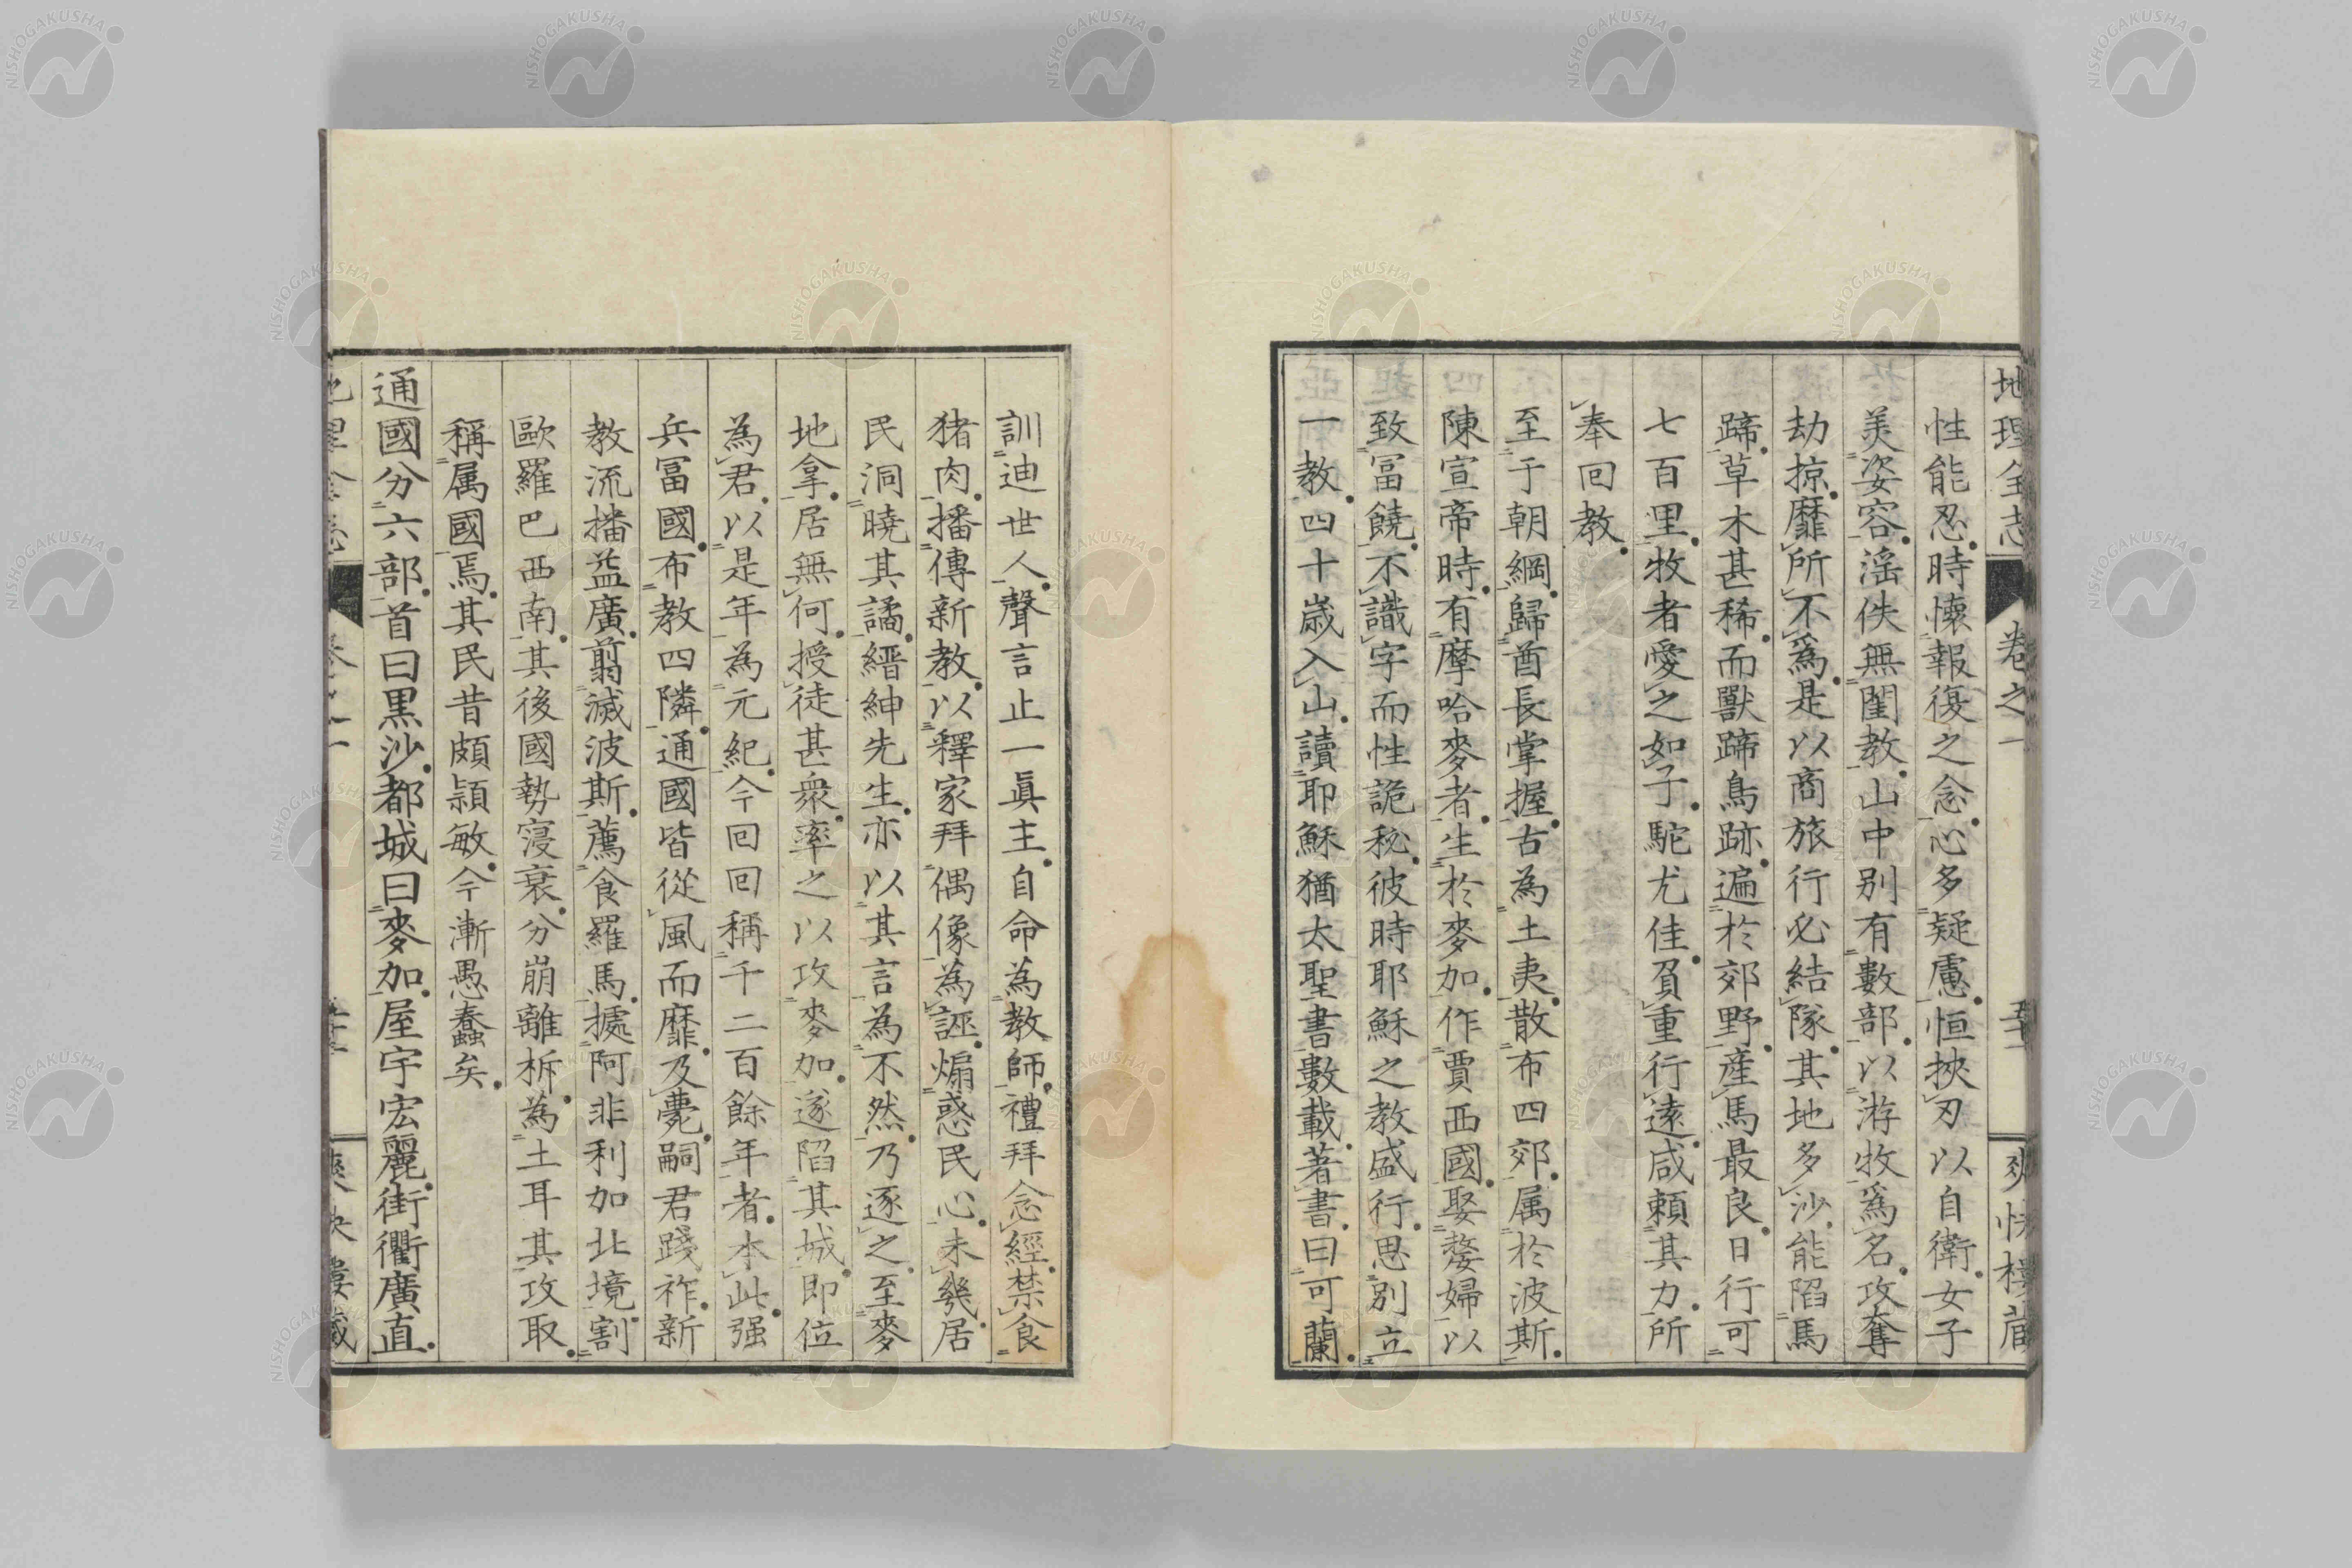 地理全志 卷之一 爽快樓藏
性能忍。時懷報復之念。心多疑慮。恒挾刃以自衛。女子
美姿容。滛佚無閨教。山中別有數部。以游牧爲名。攻奪
劫掠。靡所不爲。是以商旅行必結隊。其地多沙。能陷馬
蹄。草木甚稀。而獸蹄鳥跡。遍於郊野。産馬最良。日行可
七百里。牧者愛之如子。駝尤佳。負重行遠。咸頼其力。所
奉回教。
至于朝綱。歸酋長掌握。古為土夷。散布四郊。属於波斯。
陳宣帝時。有摩哈麥者。生於麥加。作賈西國。娶嫠婦以
致冨饒。不識字而性詭秘。彼時耶穌之教盛行。思別立
一教。四十歳入山。讀耶穌猶太聖書數載。著書。曰可蘭。
訓迪世人。聲言止一眞主。自命為教師。禮拜念經。禁食
猪肉。播傳新教。以釋家拜偶像為誣。煽惑民心。未幾。居
民洞曉其譎。縉紳先生。亦以其言為不然。乃逐之。至麥
地拿。居無何。授徒甚衆。率之以攻麥加。遂陷其城。即位
為君。以是年為元紀。今回回稱千二百餘年者。本此。强
兵冨國。布教四隣。通國皆從風而靡。及薨。嗣君踐祚。新
教流播益廣。翦滅波斯。薦食羅馬。據阿非利加北境。割
歐羅巴西南。其後國勢寖衰。分崩離柝。為土耳其攻取。
稱属國焉。其民昔頗頴敏。今漸愚蠢矣。
通國分六部。首曰黒沙。都城曰麥加。屋宇宏麗。街衢廣直。
地理全志 卷之一 爽快樓藏